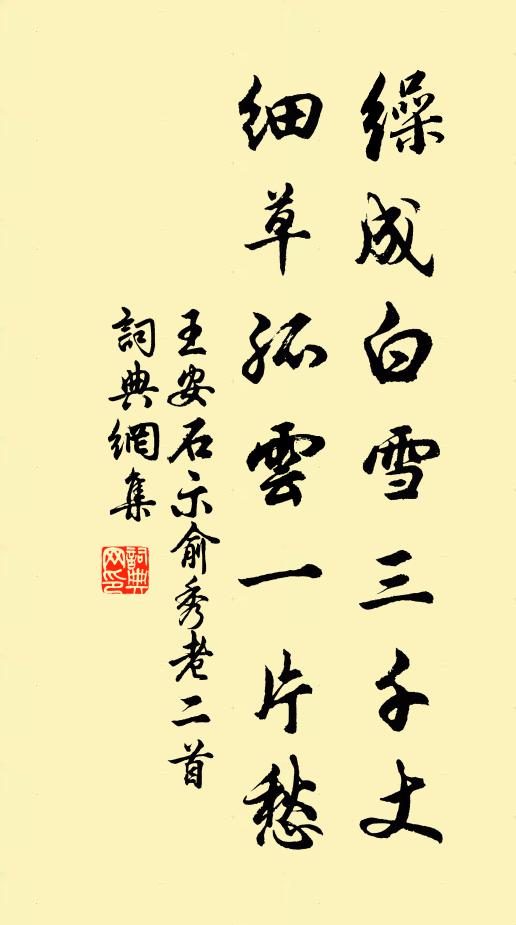 繰成白雪三千丈
細草孤雲一片愁
王安石示俞秀老二首
詞典網集
詞典網印